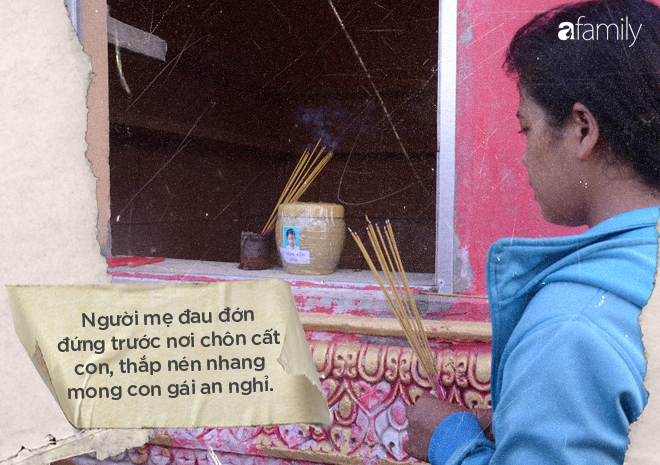 afamily
Người mẹ đau đớn
đứng trước nơi chôn cất
con, thắp nén nhang
mong con gái an nghỉ.